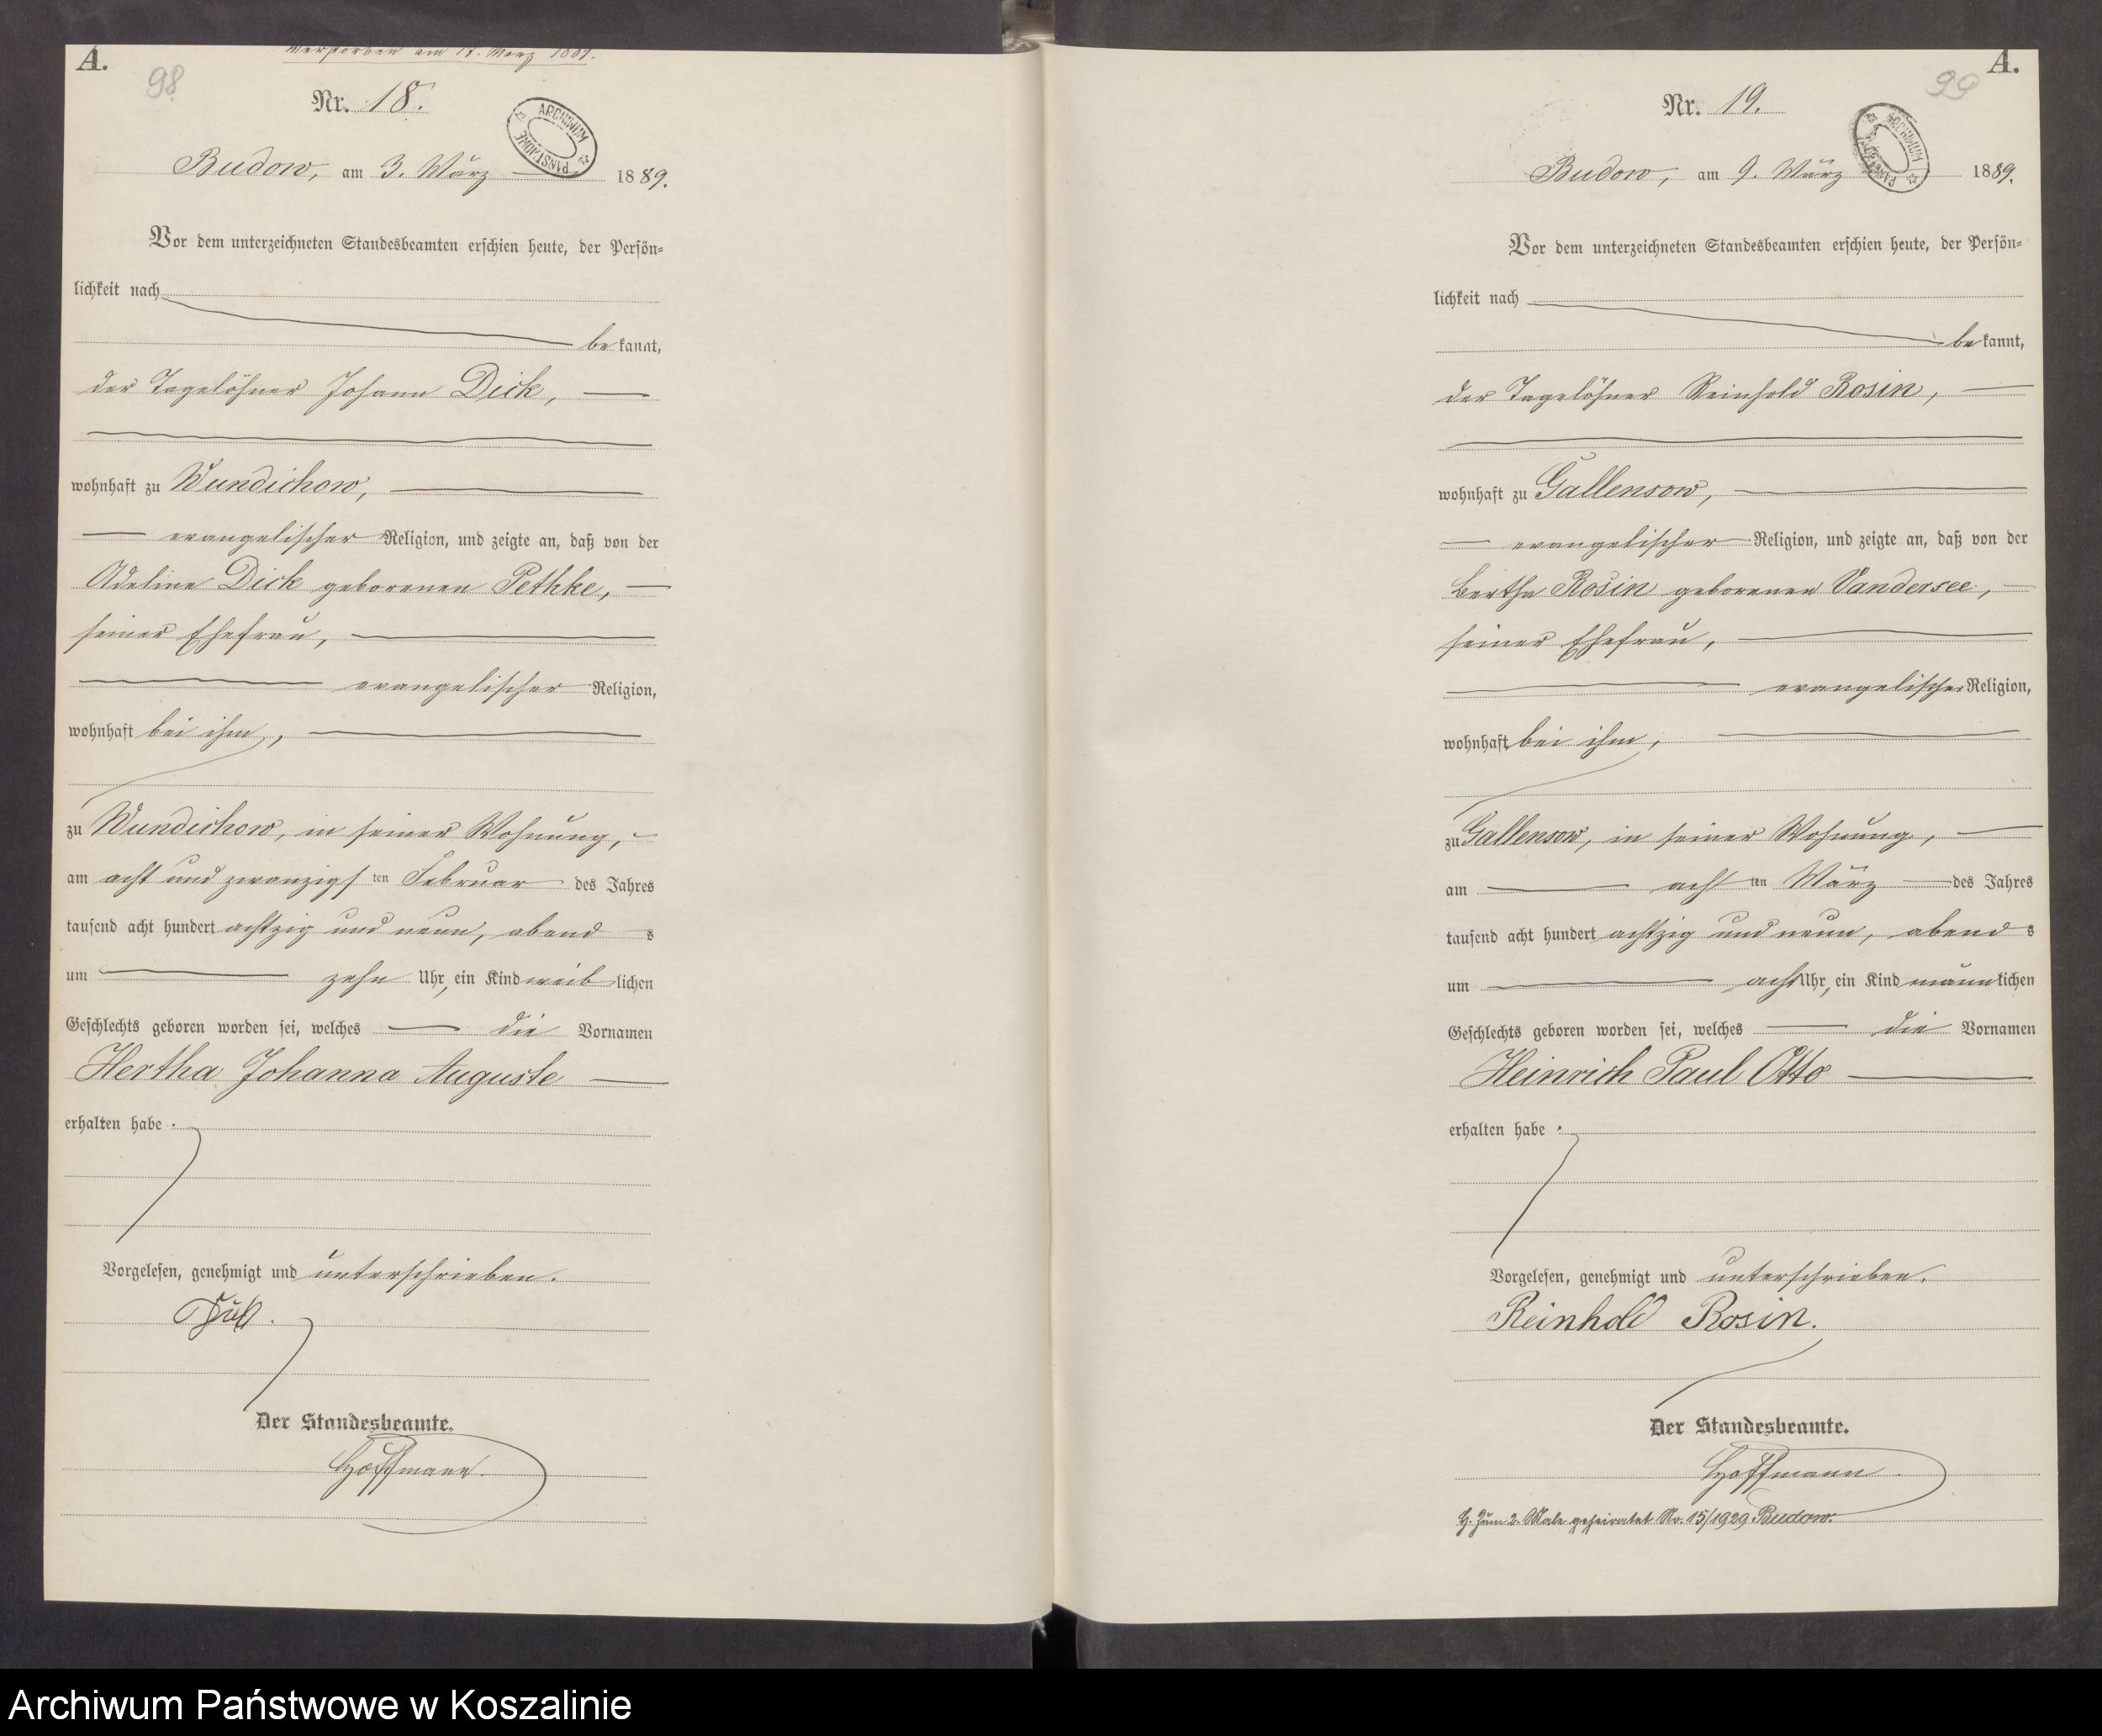 A.
Verstorben am 17. März 1889.
98
Nr. 18.
ARCHIWUM PAŃSTWOWE
Budow, am 3. März 1889.
Vor dem unterzeichneten Standesbeamten erschien heute, der Persön-
lichkeit nach
bekannt,
der Tagelöhner Johann Dick,
wohnhaft zu Wundichow,
evangelischer Religion, und zeigte an, daß von der
Adeline Dick geborenen Pethke,
seiner Ehefrau,
evangelischer Religion,
wohnhaft bei ihm,
zu Wundichow, in seiner Wohnung,
am acht und zwanzigsten Februar des Jahres
tausend acht hundert achtzig und neun, abends
um zehn Uhr, ein Kind weiblichen
Geschlechts geboren worden sei, welches die Vornamen
Hertha Johanna Auguste
erhalten habe.
Vorgelesen, genehmigt und unterschrieben.
Dick.
Der Standesbeamte.
Hoffmann.
A.
99
Nr. 19.
ARCHIWUM PAŃSTWOWE
Budow, am 9. März 1889.
Vor dem unterzeichneten Standesbeamten erschien heute, der Persön-
lichkeit nach
bekannt,
der Tagelöhner Reinhold Rosin,
wohnhaft zu Gallensow,
evangelischer Religion, und zeigte an, daß von der
Bertha Rosin geborenen Vandersee,
seiner Ehefrau,
evangelischer Religion,
wohnhaft bei ihm,
zu Gallensow, in seiner Wohnung,
am achten März des Jahres
tausend acht hundert achtzig und neun, abends
um acht Uhr, ein Kind männlichen
Geschlechts geboren worden sei, welches die Vornamen
Heinrich Paul Otto
erhalten habe.
Vorgelesen, genehmigt und unterschrieben.
Reinhold Rosin.
Der Standesbeamte.
Hoffmann.
H. Zum 2. Male geheiratet Nr. 15/1929 Budow.
Archiwum Państwowe w Koszalinie